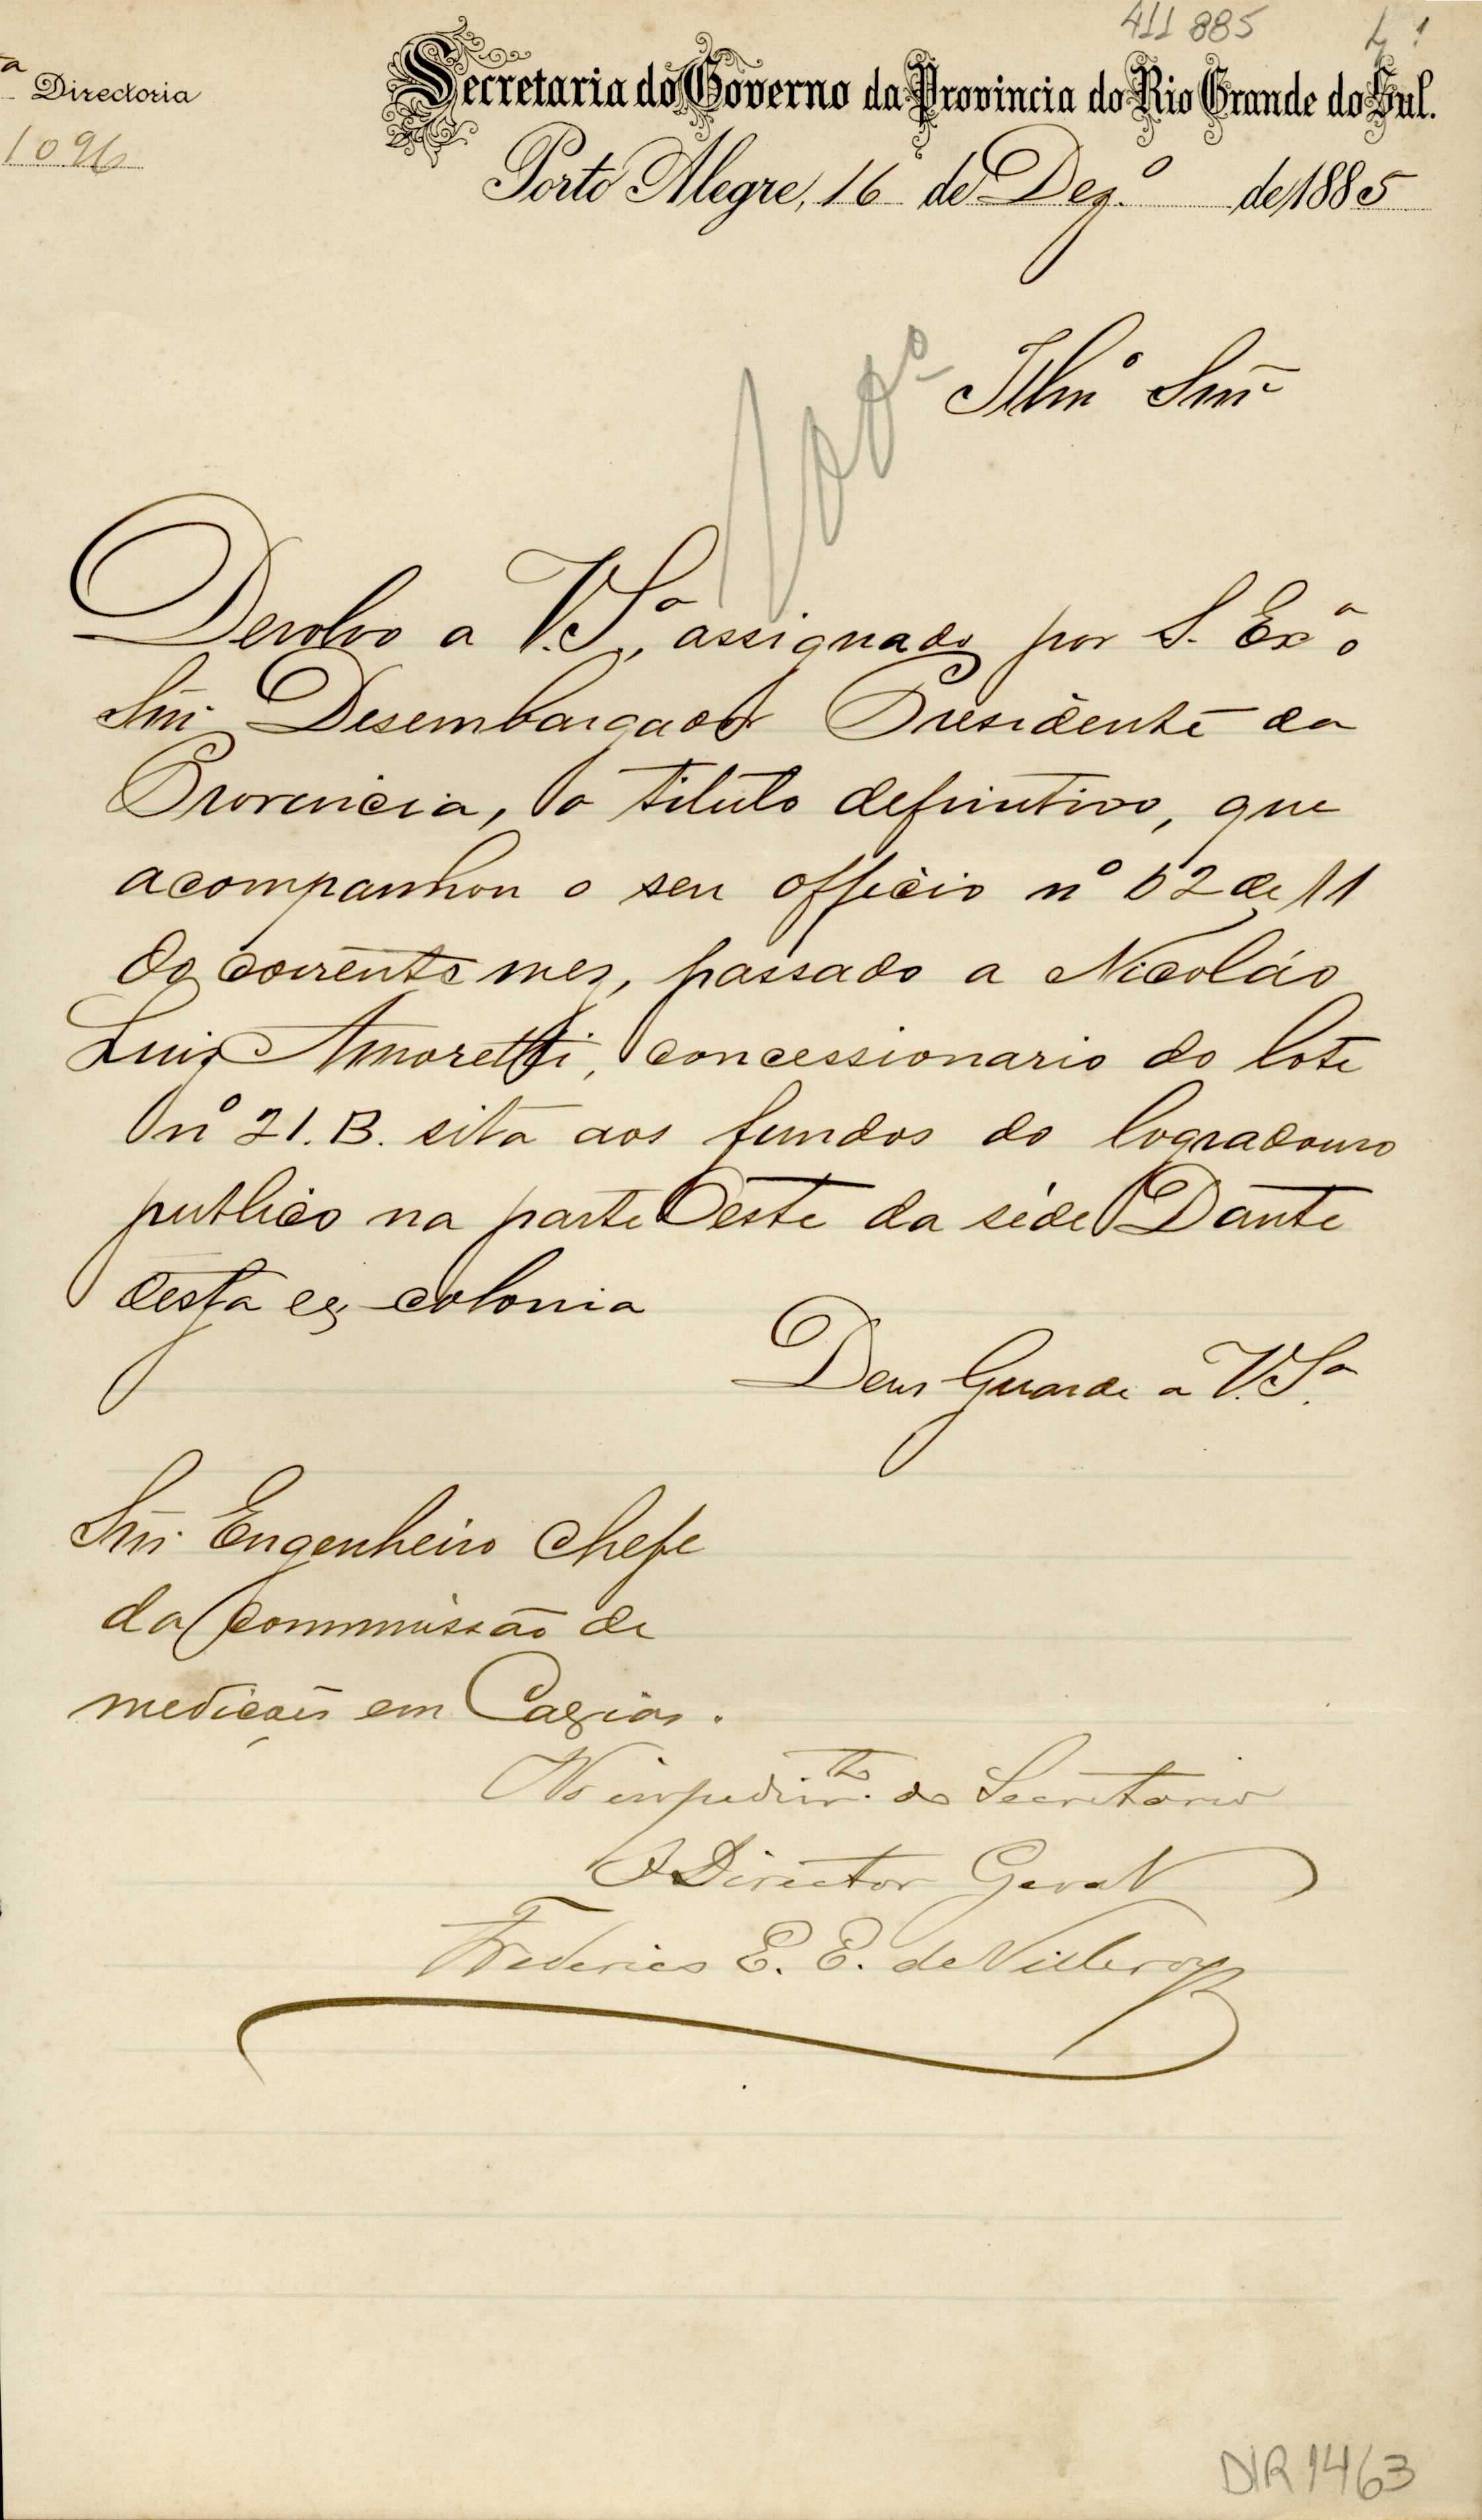 411 885
ª Directoria
1096
Secretaria do Governo da Provincia do Rio Grande do Sul.
Porto Alegre, 16 de Dezº de 1885
Illmº Snr
Devolvo a V. Sª, assignado por S. Exª o
Snr Desembargador Presidente da
Provincia, o titulo definitivo, que
acompanhou o seu officio nº 62 de 11
do corrente mez, passado a Nicoláo
Luiz Amoretti, concessionario do lote
nº 21. B. sito aos fundos do logradouro
publico na parte Oeste da séde Dante
desta ex-colonia
Deus Guarde a V. Sª.
Snr Engenheiro Chefe
da Commissão de
medições em Caxias.
No impedimto. do Secretario
O Director Geral
Frederico E. E. de Villeroy
DIR 1463